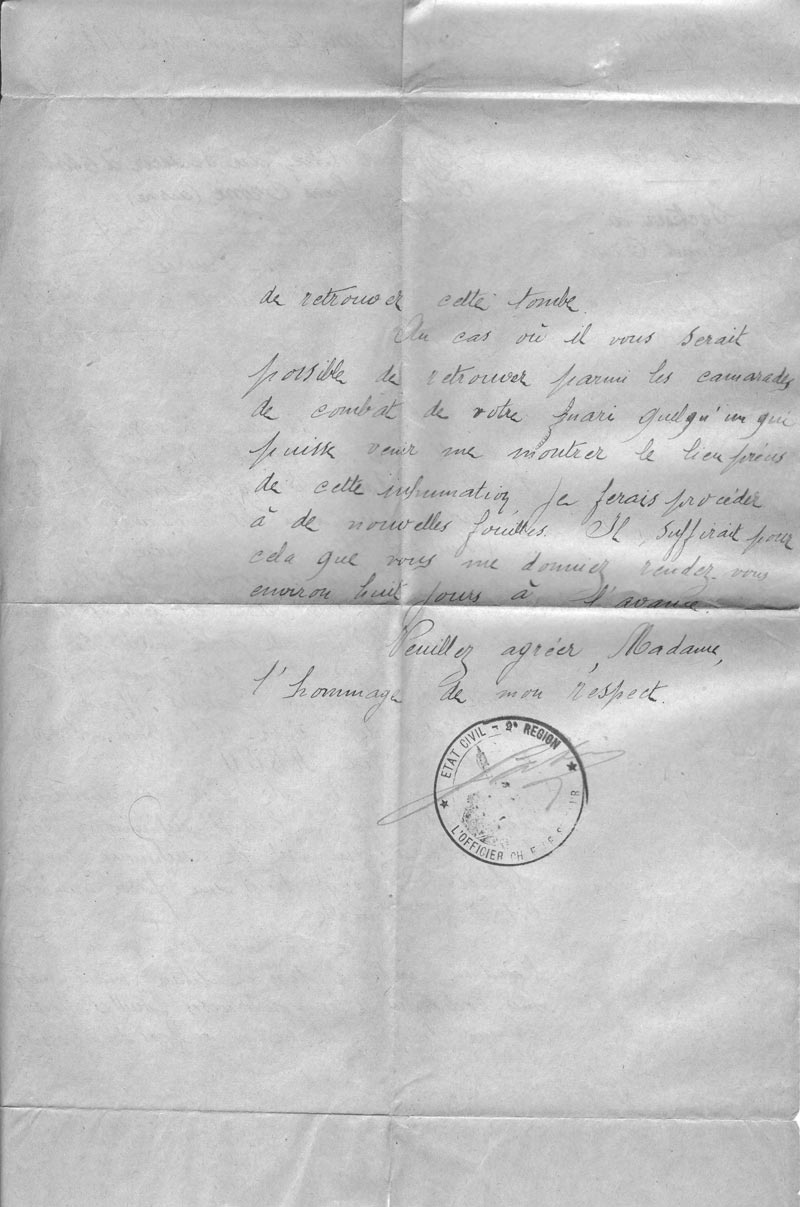 de retrouver cette tombe.
Au cas où il vous serait
possible de retrouver parmi les camarades
de combat de votre mari quelqu'un qui
puisse venir me montrer le lieu précis
de cette inhumation, je ferais procéder
à de nouvelles fouilles. Il suffirait pour
cela que vous me donniez rendez-vous
environ huit jours à l'avance.
Veuillez agréer, Madame,
l'hommage de mon respect.
ETAT CIVIL - 2e REGION
L'OFFICIER CH